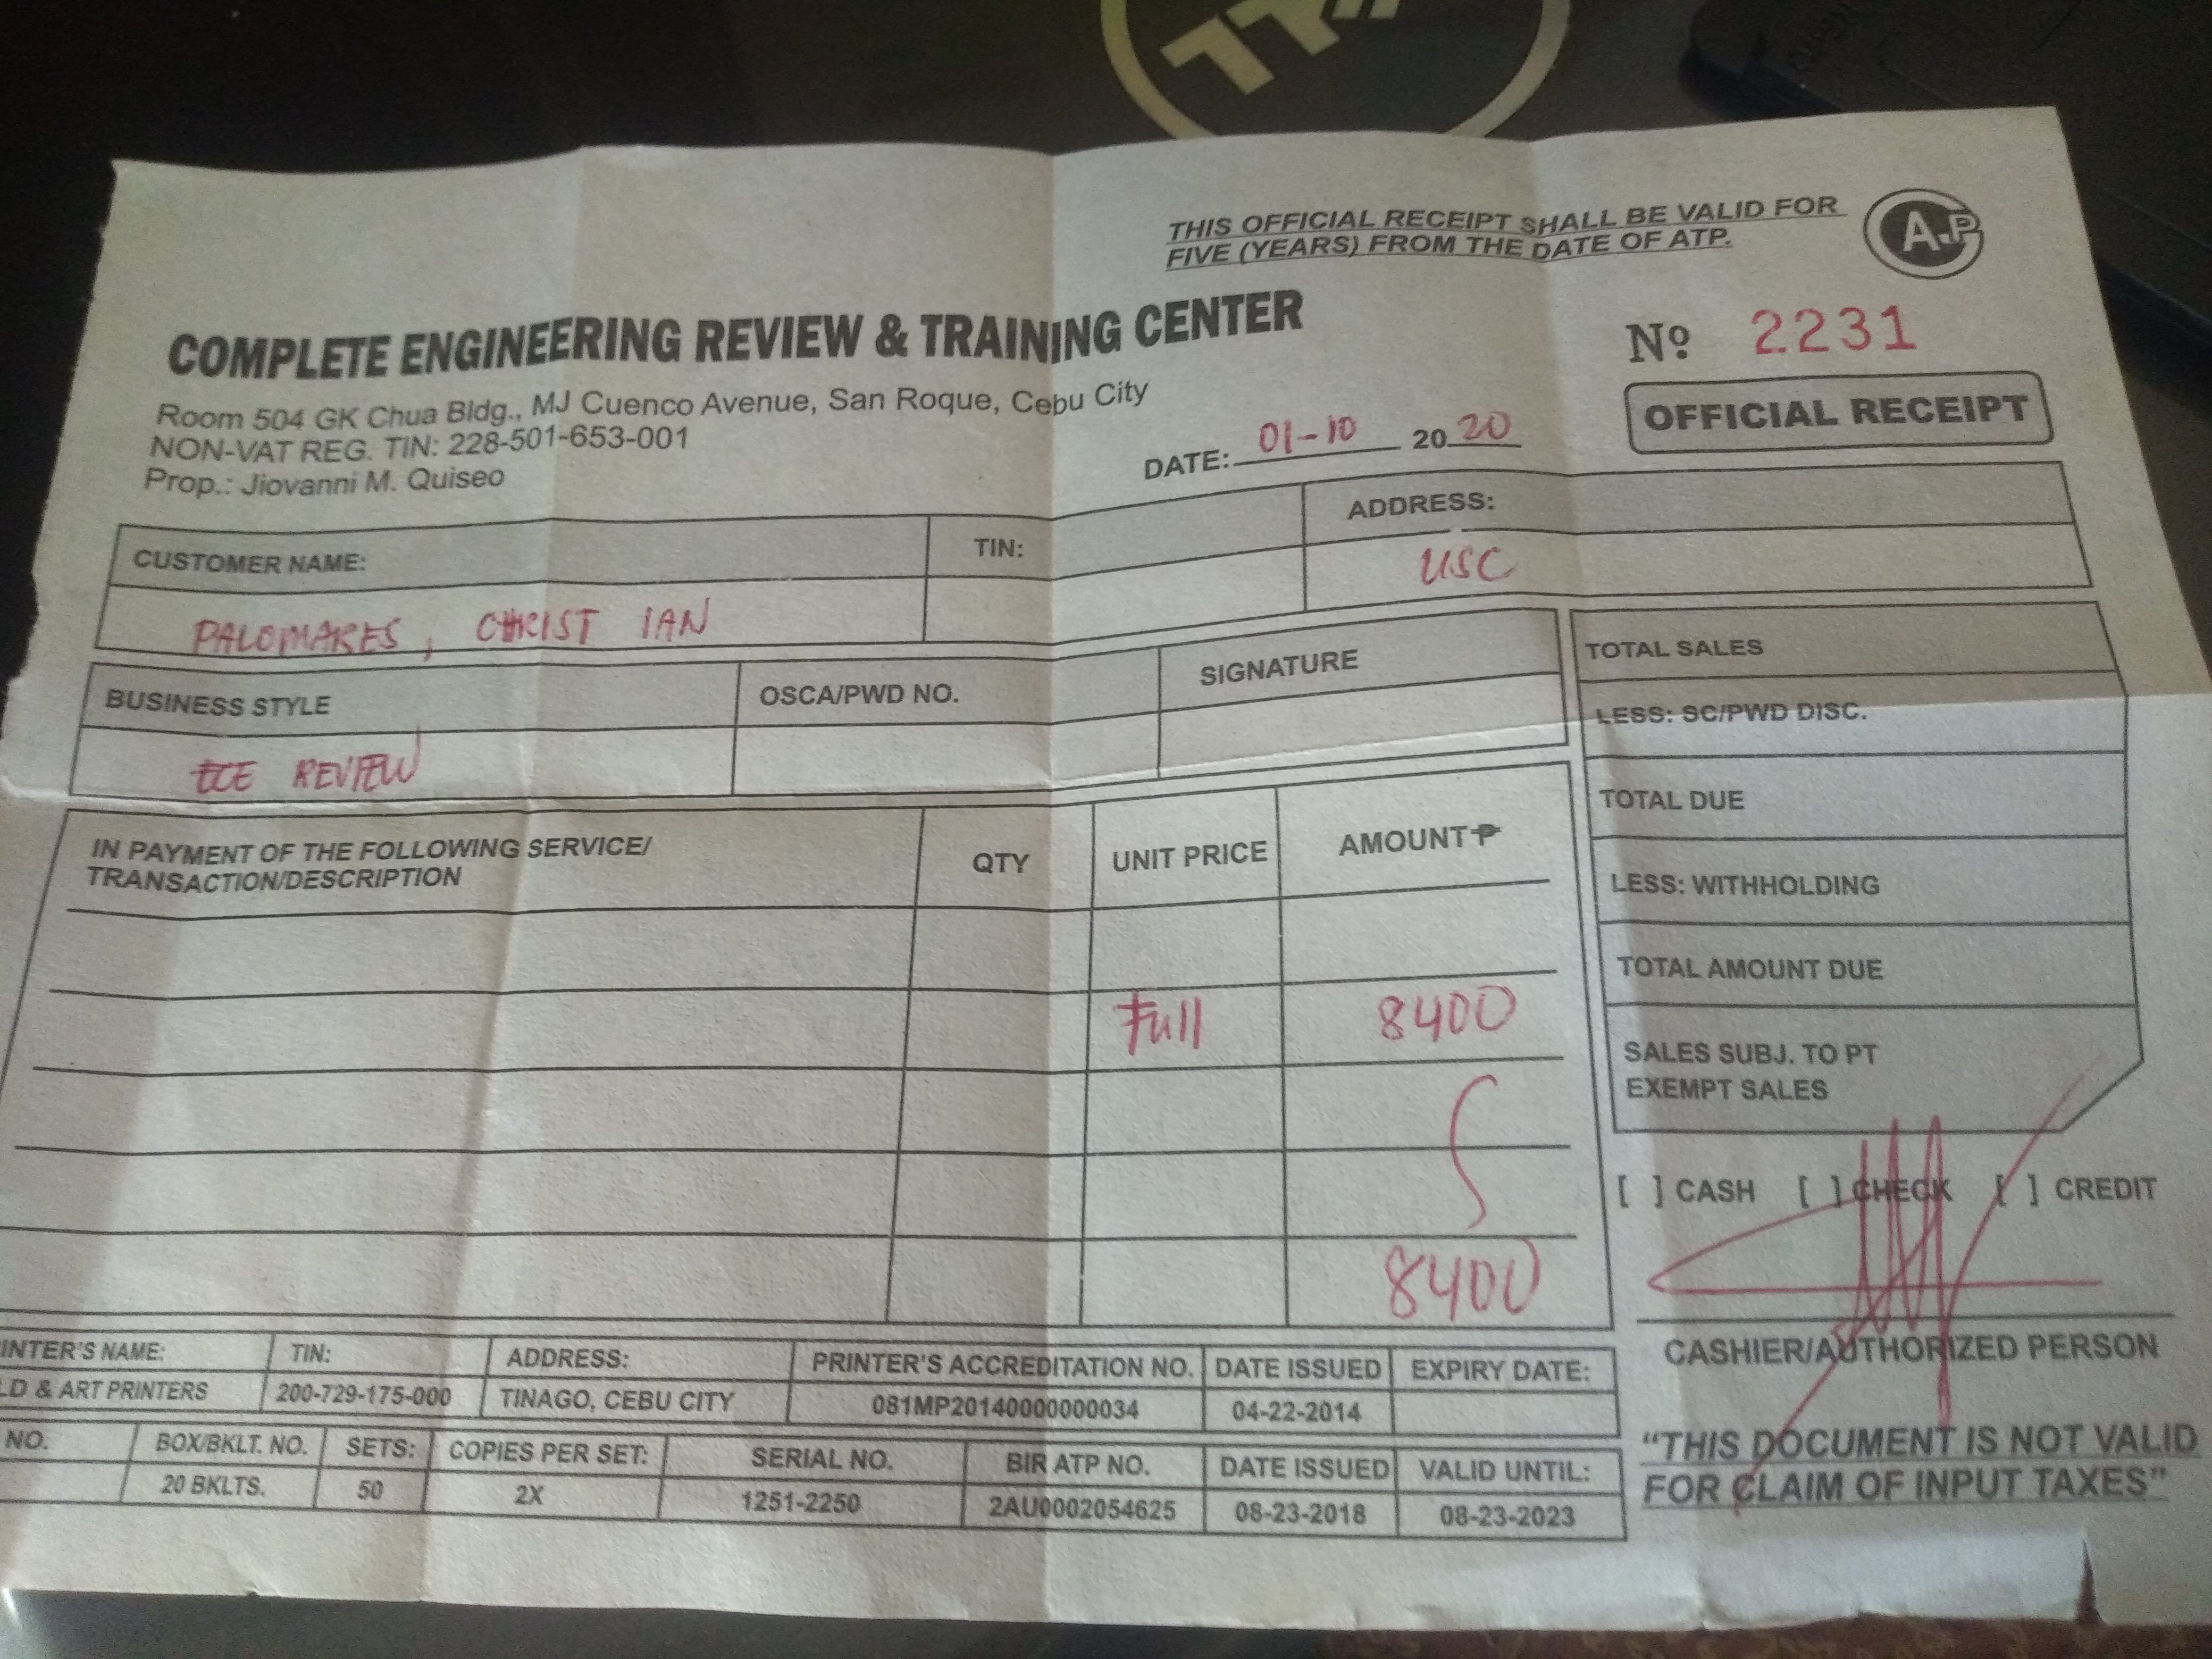 THIS OFFICIAL RECEIPT SHALL BE VALID FOR
FIVE (YEARS) FROM THE DATE OF ATP.
A.P
COMPLETE ENGINEERING REVIEW & TRAINING CENTER
Room 504 GK Chua Bldg., MJ Cuenco Avenue, San Roque, Cebu City
NON-VAT REG. TIN: 228-501-653-001
Prop.: Jiovanni M. Quiseo
Nº 2231
OFFICIAL RECEIPT
DATE: 01-10 2020
CUSTOMER NAME: TIN: ADDRESS:
PALOMARES, CHRIST IAN USC
BUSINESS STYLE OSCA/PWD NO. SIGNATURE
ECE REVIEW
IN PAYMENT OF THE FOLLOWING SERVICE/
TRANSACTION/DESCRIPTION
QTY UNIT PRICE AMOUNT ₱
Full 8400
8400
TOTAL SALES
LESS: SC/PWD DISC.
TOTAL DUE
LESS: WITHHOLDING
TOTAL AMOUNT DUE
SALES SUBJ. TO PT
EXEMPT SALES
[ ] CASH [ ] CHECK [ ] CREDIT
CASHIER/AUTHORIZED PERSON
"THIS DOCUMENT IS NOT VALID
FOR CLAIM OF INPUT TAXES"
INTER'S NAME: TIN: ADDRESS: PRINTER'S ACCREDITATION NO. DATE ISSUED EXPIRY DATE:
LD & ART PRINTERS 200-729-175-000 TINAGO, CEBU CITY 081MP20140000000034 04-22-2014
NO. BOX/BKLT. NO. SETS: COPIES PER SET: SERIAL NO. BIR ATP NO. DATE ISSUED VALID UNTIL:
20 BKLTS. 50 2X 1251-2250 2AU0002054625 08-23-2018 08-23-2023